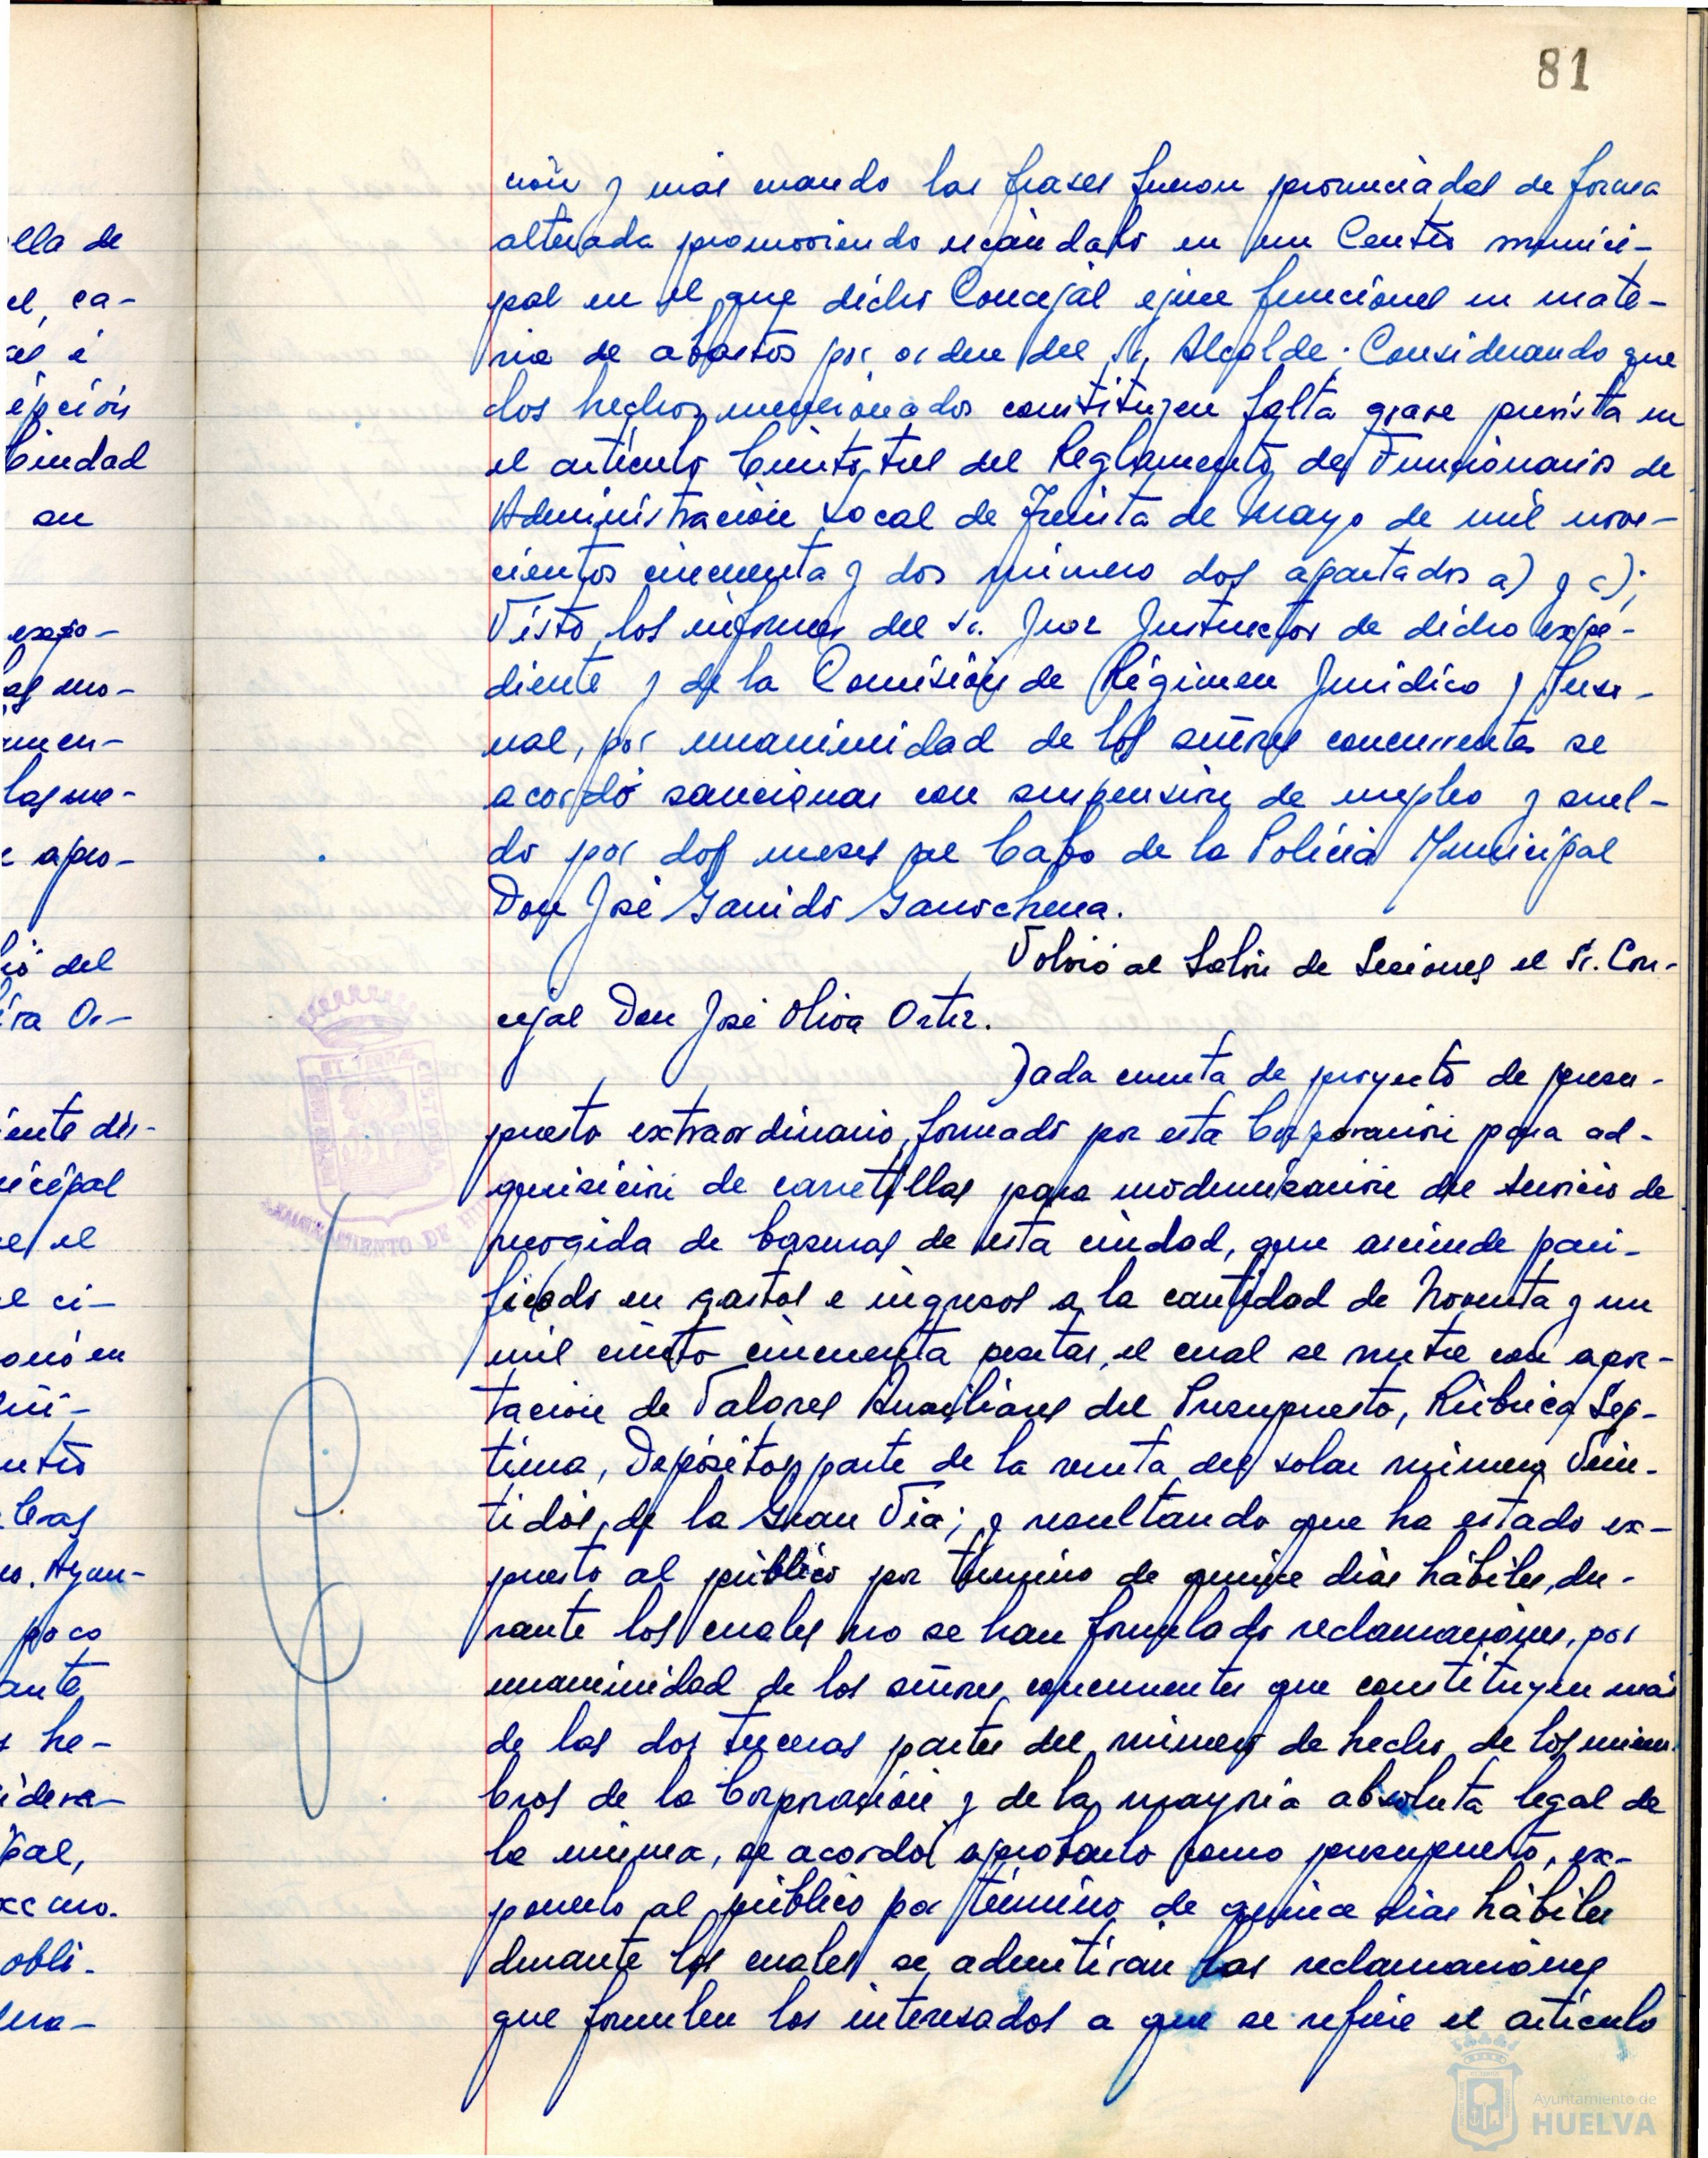 81
ción y más cuando las frases fueron pronunciadas de forma
alterada promoviendo escándalo en un Centro munici-
pal en el que dicho Concejal ejerce funciones en mate-
ria de abastos por orden del Sr. Alcalde. Considerando que
los hechos mencionados constituyen falta grave prevista en
el artículo Ciento tres del Reglamento de Funcionarios de
Administración Local de Treinta de Mayo de mil nove-
cientos cincuenta y dos número dos apartados a) y c);
Visto los informes del Sr. Juez Instructor de dicho expe-
diente y de la Comisión de Régimen Jurídico y Perso-
nal, por unanimidad de los señores concurrentes se
acordó sancionar con suspensión de empleo y suel-
do por dos meses al Cabo de la Policía Municipal
Don José Garrido
Volvió al Salón de Sesiones el Sr. Con-
cejal Don José Oliva Ortiz.
Dada cuenta de proyecto de presu-
puesto extraordinario, formado por esta Corporación para ad-
quisición de carretillas para modernización del servicio de
recogida de basuras de esta ciudad, que asciende pari-
ficado en gastos e ingresos a la cantidad de Noventa y un
mil ciento cincuenta pesetas, el cual se nutre con apor-
tación de Valores Auxiliares del Presupuesto, Rúbrica Sep-
tima, Depósitos, parte de la venta del solar número Vein-
tidós, de la Gran Vía; y resultando que ha estado ex-
puesto al público por término de quince días hábiles, du-
rante los cuales no se han formulado reclamaciones, por
unanimidad de los señores concurrentes que constituyen más
de las dos terceras partes del número de hecho de los miem-
bros de la Corporación y de la mayoría absoluta legal de
la misma, se acordó aprobarlo como presupuesto, ex-
ponerlo al público por término de quince días hábiles
durante los cuales se admitirán las reclamaciones
que formulen los interesados a que se refiere el artículo
ella de
el ca-
epción
Ciudad
su
expo-
mo-
umen-
las me-
apro-
del
Or-
iente dis-
nicipal
el
ci-
en
Ayun-
poco
ante
he-
idera-
pal,
xcmo.
obli-
AYUNTAMIENTO DE HUELVA
Ayuntamiento de
HUELVA